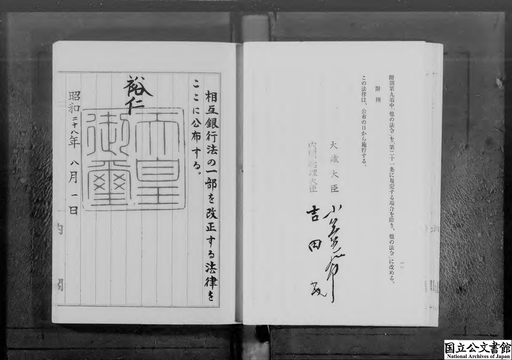 附則第九項中「他の法令」を「第二十一条に規定する場合を除き、他の法令」に改める。
附 則
この法律は、公布の日から施行する。
大蔵大臣
内閣総理大臣 吉田茂
相互銀行法の一部を改正する法律を
ここに公布する。
裕仁
天皇御璽
昭和二十八年 八月 一日
内閣
国立公文書館
National Archives of Japan